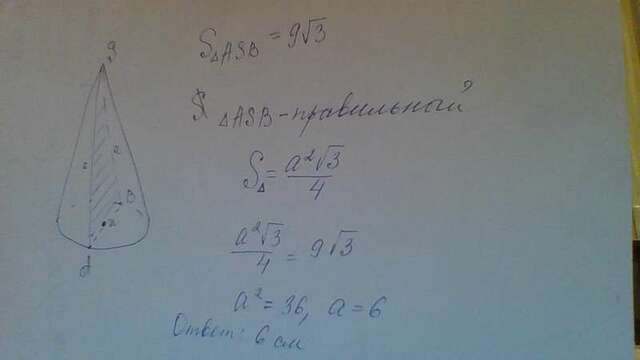 S△ASB = 9√3
△ASB - правильный
S△ = a²√3/4
a²√3/4 = 9√3
a² = 36, a = 6
Ответ: 6 см
S
a
a
B
a
A